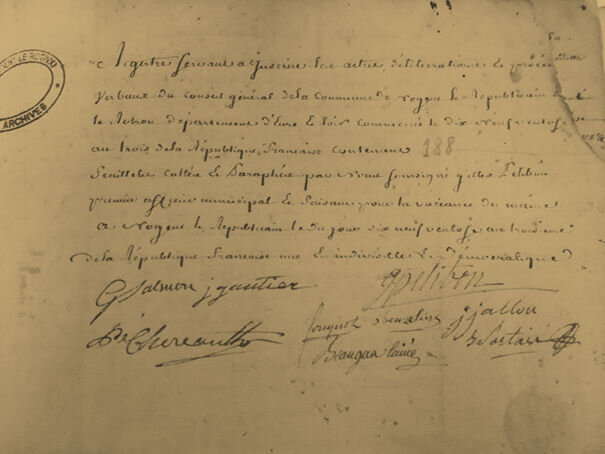 Registre servant a inscrire les actes, déliberations Et procès
Verbaux du Conseil général de la Commune de nogent le Republicain
le Rotrou département d'Eure Et loir commencé le dix neuf ventose
an trois de la République française contenant 188
feuillets Cottés Et Paraphés par nous soussigné gilles Petibon
premier officier municipal Et faisant pour la vacance du maire
A nogent le Republicain le du jour dix neuf ventose an troisieme
de la République francaise une Et indivisible Et Democratique
G Salmon j gautier
gpetibon
fouquet Beuzelin jjallon
ARCHIVES